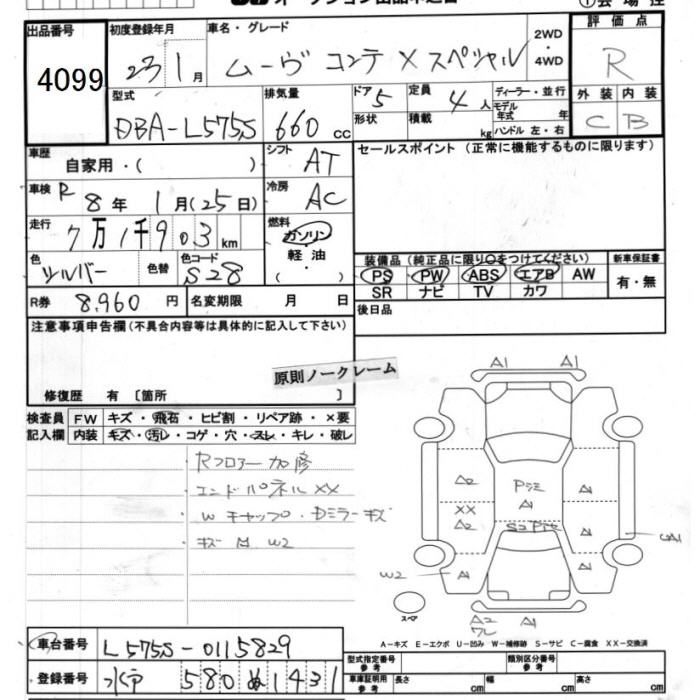 オークション出品申込書
①会場控
出品番号 4099
初度登録年月 23 1月
車名・グレード ムーヴ コンテ Xスペシャル 2WD・4WD
評価点 R
型式 DBA-L575S
排気量 660 cc
ドア 5 形状
定員 4人 積載 kg
ディーラー・並行
モデル年式 年
ハンドル 左・右
外装 C 内装 B
車歴 自家用・( )
シフト AT
セールスポイント (正常に機能するものに限ります)
車検 R 8年 1月(25日)
冷房 AC
走行 7万1千903km
燃料 ガソリン・軽油・( )
色 シルバー 色替 色コード S28
装備品(純正品に限り○をつけてください)
PS PW ABS エアB AW
SR ナビ TV カワ
新車保証書 有・無
R券 8,960円 名変期限 月 日
後日品
注意事項申告欄(不具合内容等は具体的に記入して下さい)
原則ノークレーム
修復歴 有〔箇所 〕
検査員記入欄
FW キズ・飛石・ヒビ割・リペア跡・×要
内装 キズ・汚レ・コゲ・穴・スレ・キレ・破レ
Rフロアー加修
エンドパネルXX
Wキャップ・Dミラーキズ
キズ W2
A1 A1
A2 A1 A1
XX A2 A1
A1 A1
UA1
W2
スペア
A2 A1
A-キズ E-エクボ U-凹み W-補修跡 S-サビ C-腐食 XX-交換済
車台番号 L575S-0115829
登録番号 水戸 580 ぬ 1431
型式指定番号 参考
類別区分番号 参考
車庫証明用 参考 長さ cm 幅 cm 高さ cm